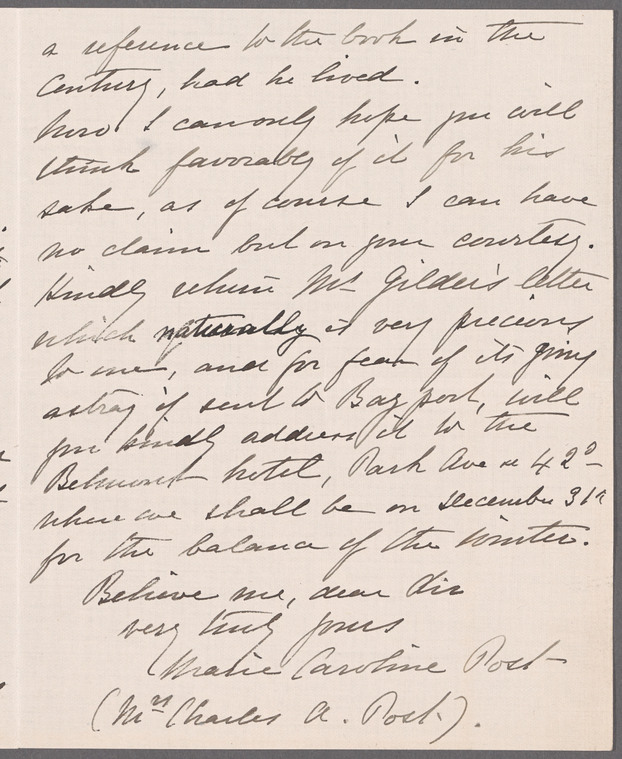 a reference to the book in the
Century, had he lived.
Now I can only hope you will
think favorably of it for his
sake, as of course I can have
no claim but on your courtesy.
Kindly return Mr Gilder's letter
which naturally is very precious
to me, and for fear of its going
astray if sent to Bayport, will
you kindly address it to the
Belmont hotel, Park Ave & 42d
where we shall be on December 31st
for the balance of the winter.
Believe me, dear Sir
very truly yours
Marie Caroline Post
(Mrs Charles A. Post.).